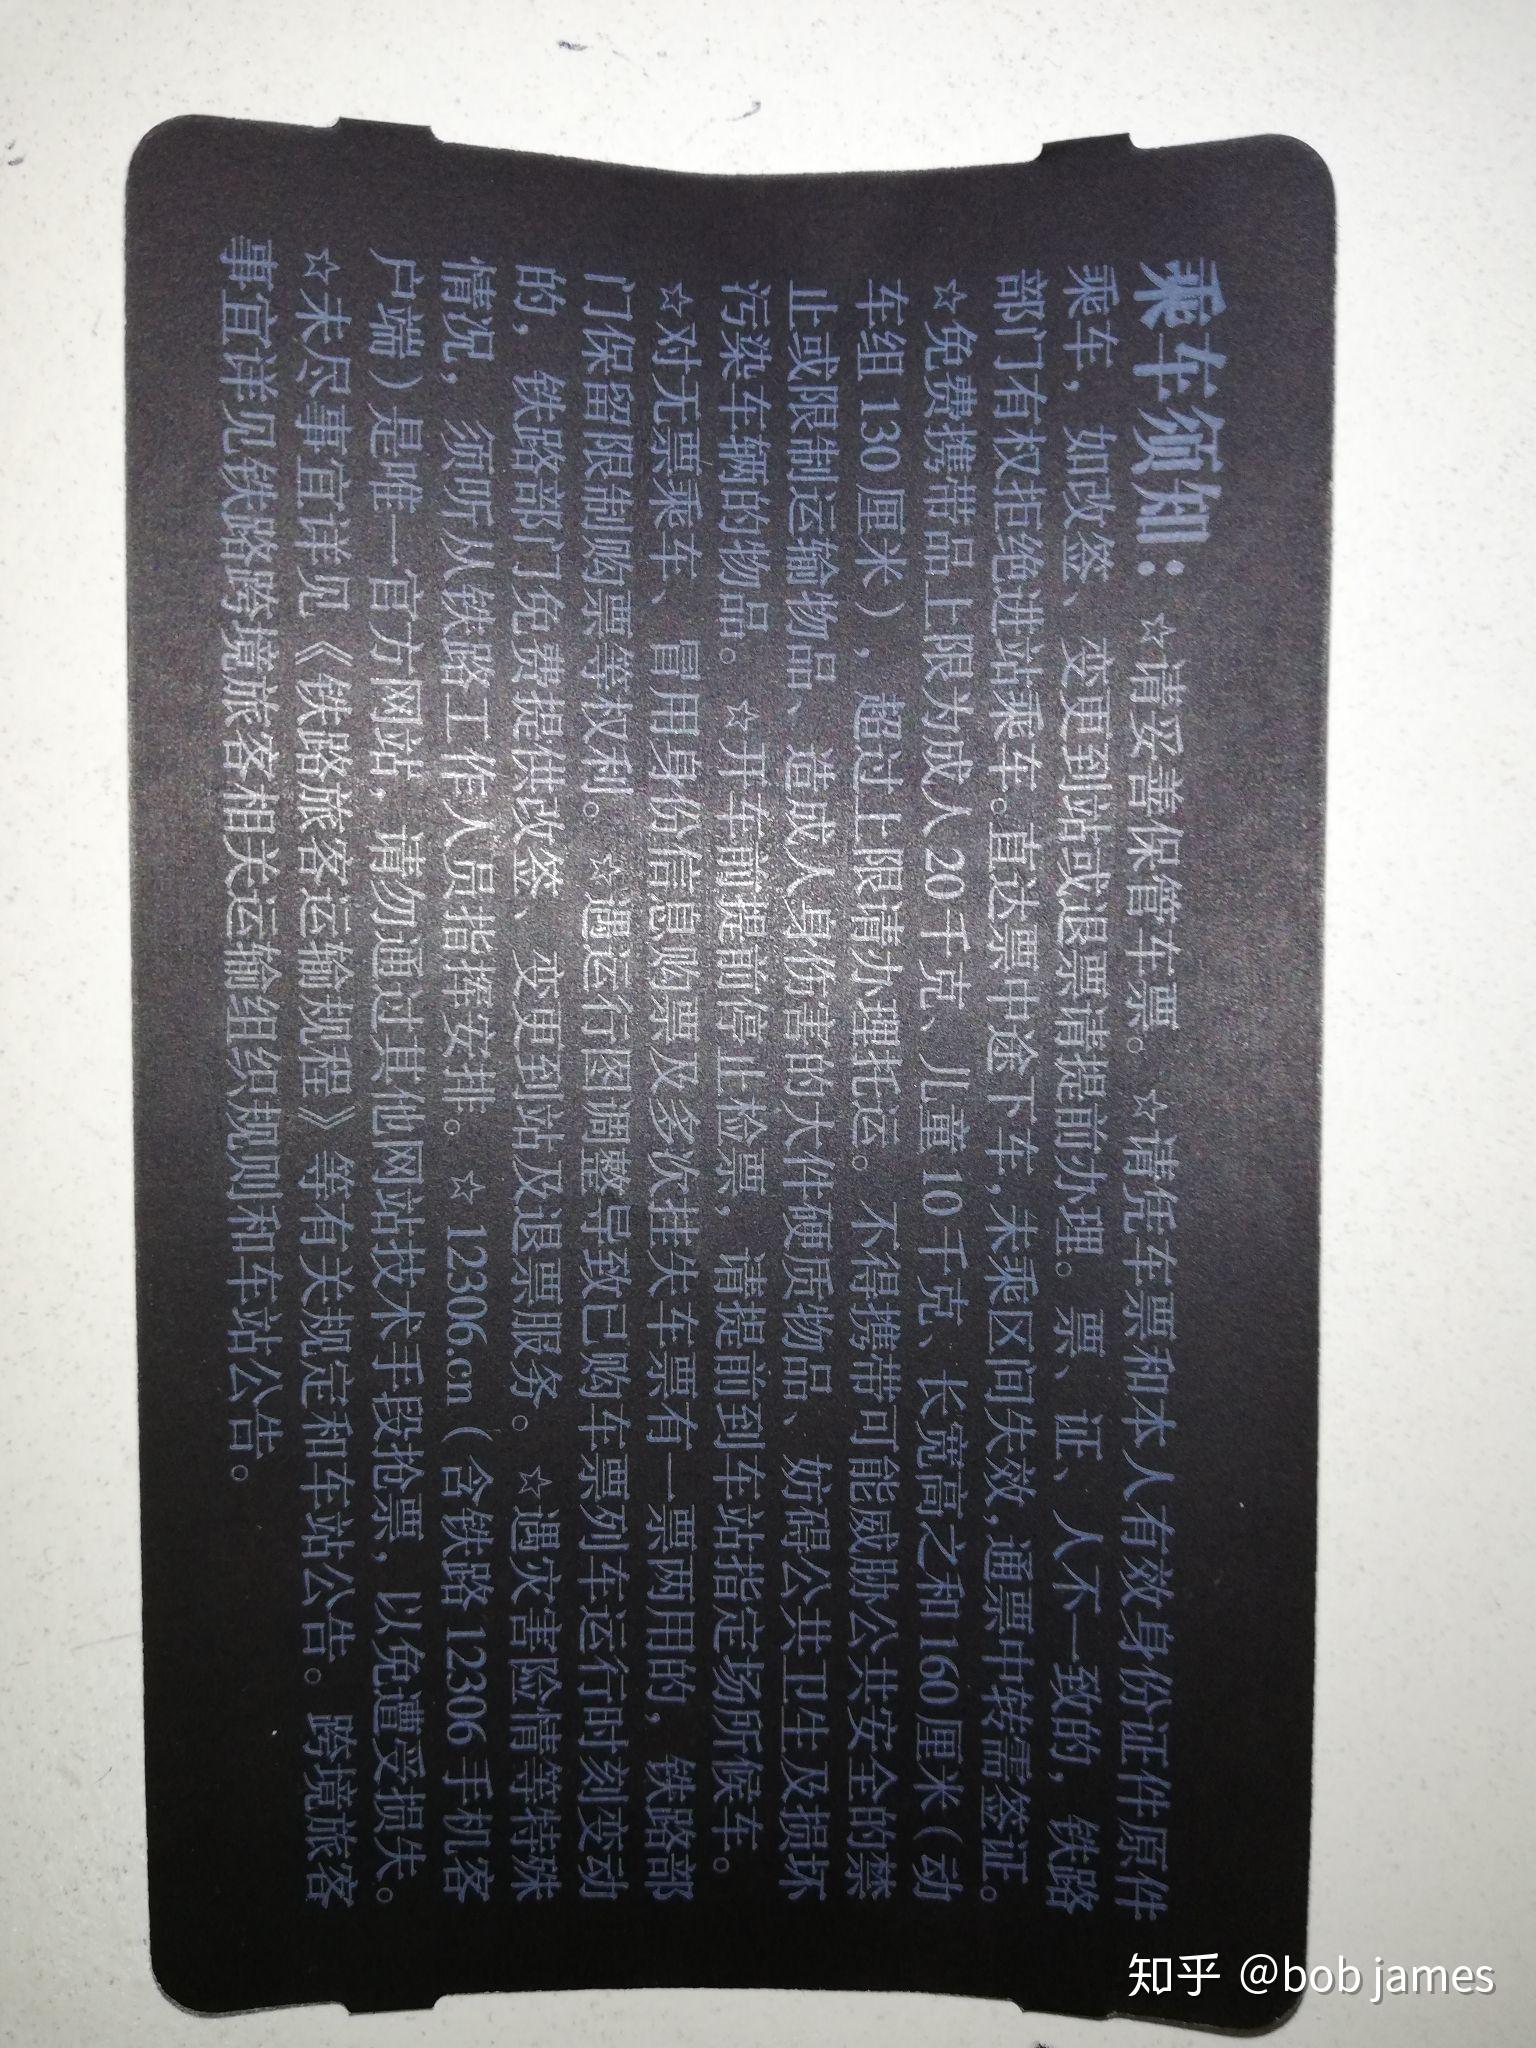 乘车须知：☆请妥善保管车票。☆请凭车票和本人有效身份证件原件
乘车，如改签、变更到站或退票请提前办理。票、证、人不一致的，铁路
部门有权拒绝进站乘车。直达票中途下车，未乘区间失效，通票中转需签证。
☆免费携带品上限为成人20千克、儿童10千克、长宽高之和160厘米（动
车组130厘米），超过上限请办理托运。不得携带可能威胁公共安全的禁
止或限制运输物品、造成人身伤害的大件硬质物品、妨碍公共卫生及损坏
污染车辆的物品。☆开车前提前停止检票，请提前到车站指定场所候车。
☆对无票乘车、冒用身份信息购票及多次挂失车票有一票两用的，铁路部
门保留限制购票等权利。☆遇运行图调整导致已购车票列车运行时刻变动
的，铁路部门免费提供改签、变更到站及退票服务。☆遇灾害险情等特殊
情况，须听从铁路工作人员指挥安排。☆12306.cn（含铁路12306手机客
户端）是唯一官方网站，请勿通过其他网站技术手段抢票，以免遭受损失。
☆未尽事宜详见《铁路旅客运输规程》等有关规定和车站公告。跨境旅客
事宜详见铁路跨境旅客相关运输组织规则和车站公告。
知乎 @bob james